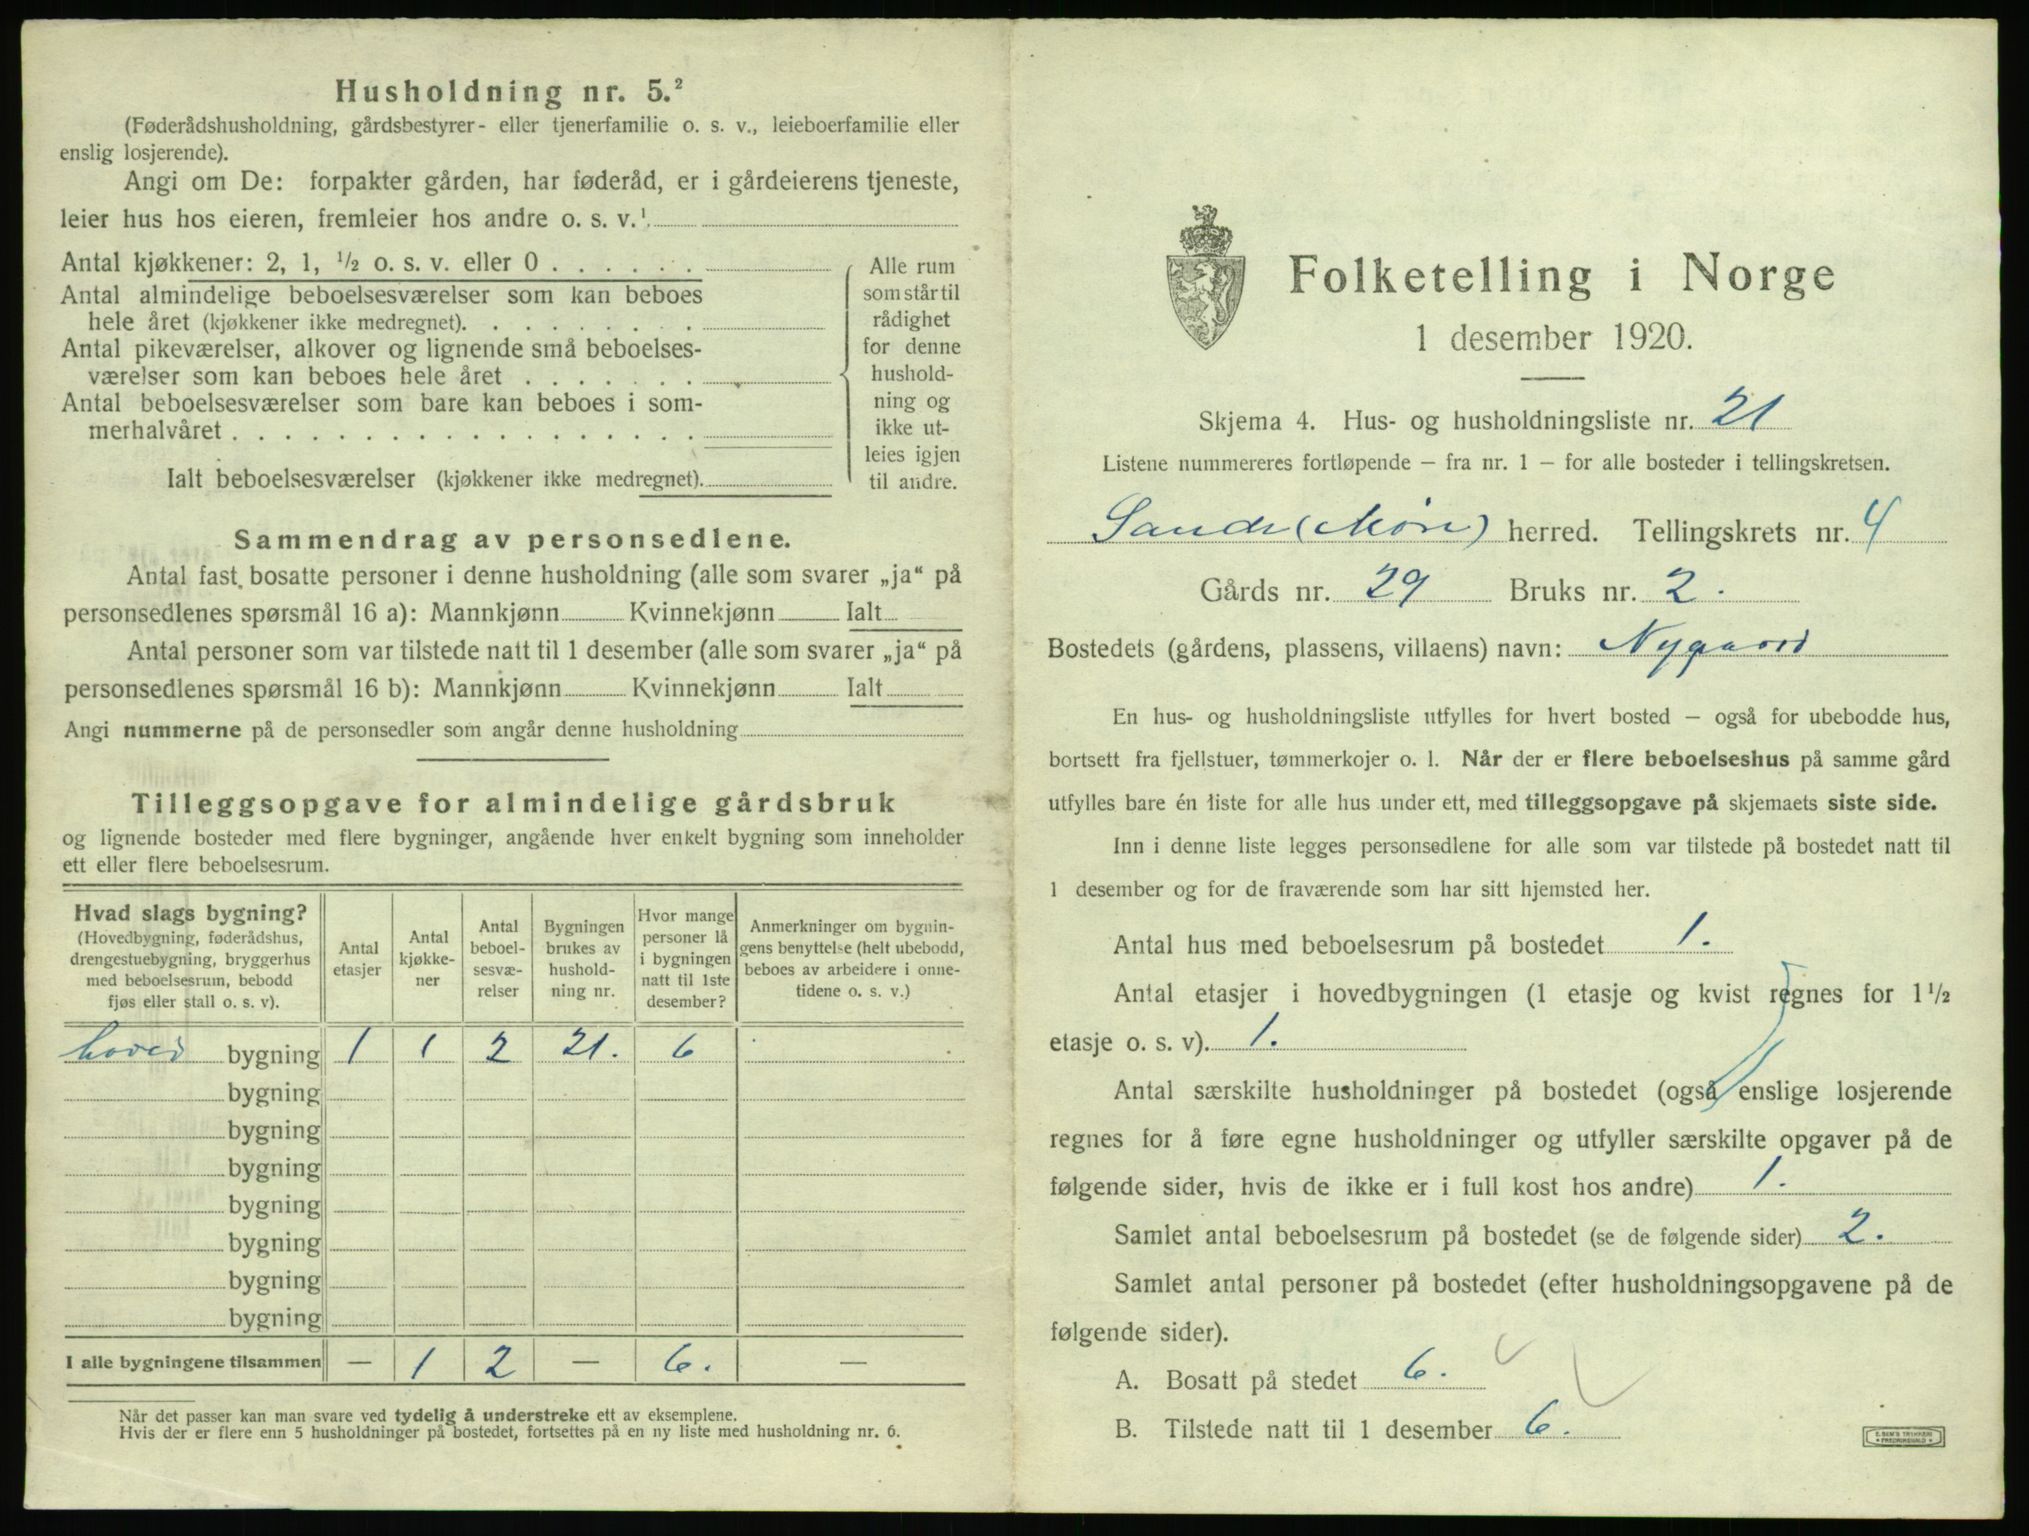 Husholdning nr. 5.²
(Føderådshusholdning, gårdsbestyrer- eller tjenerfamilie o. s. v., leieboerfamilie eller
enslig losjerende).
Angi om De: forpakter gården, har føderåd, er i gårdeierens tjeneste,
leier hus hos eieren, fremleier hos andre o. s. v.¹
Antal kjøkkener: 2, 1, ½ o. s. v. eller 0 . . . . . .
Antal almindelige beboelsesværelser som kan beboes
hele året (kjøkkener ikke medregnet). . . . . . . . .
Antal pikeværelser, alkover og lignende små beboelses-
værelser som kan beboes hele året . . . . . . .
Antal beboelsesværelser som bare kan beboes i som-
merhalvåret . . . . . . . . . . . . . . . . . .
Ialt beboelsesværelser (kjøkkener ikke medregnet).
Alle rum
som står til
rådighet
for denne
hushold-
ning og
ikke ut-
leies igjen
til andre.
Sammendrag av personsedlene.
Antal fast bosatte personer i denne husholdning (alle som svarer „ja“ på
personsedlenes spørsmål 16 a): Mannkjønn Kvinnekjønn Ialt
Antal personer som var tilstede natt til 1 desember (alle som svarer „ja“ på
personsedlenes spørsmål 16 b): Mannkjønn Kvinnekjønn Ialt
Angi nummerne på de personsedler som angår denne husholdning
Tilleggsopgave for almindelige gårdsbruk
og lignende bosteder med flere bygninger, angående hver enkelt bygning som inneholder
ett eller flere beboelsesrum.
Hvad slags bygning?
(Hovedbygning, føderådshus,
drengestuebygning, bryggerhus
med beboelsesrum, bebodd
fjøs eller stall o. s. v).
Antal
etasjer
Antal
kjøkke-
ner
Antal
beboel-
sesvæ-
relser
Bygningen
brukes av
hushold-
ning nr.
Hvor mange
personer lå
i bygningen
natt til 1ste
desember?
Anmerkninger om bygnin-
gens benyttelse (helt ubebodd,
beboes av arbeidere i onne-
tidene o. s. v.)
hoved bygning 1 1 2 21. 6
bygning
bygning
bygning
bygning
bygning
bygning
bygning
I alle bygningene tilsammen — 1 2 — 6. —
Når det passer kan man svare ved tydelig å understreke ett av eksemplene.
Hvis der er flere enn 5 husholdninger på bostedet, fortsettes på en ny liste med husholdning nr. 6.
Folketelling i Norge
1 desember 1920.
Skjema 4. Hus- og husholdningsliste nr. 21
Listene nummereres fortløpende – fra nr. 1 – for alle bosteder i tellingskretsen.
Sande (Møre) herred. Tellingskrets nr. 4
Gårds nr. 29 Bruks nr. 2.
Bostedets (gårdens, plassens, villaens) navn: Nygaard
En hus- og husholdningsliste utfylles for hvert bosted – også for ubebodde hus,
bortsett fra fjellstuer, tømmerkojer o. l. Når der er flere beboelseshus på samme gård
utfylles bare én liste for alle hus under ett, med tilleggsopgave på skjemaets siste side.
Inn i denne liste legges personsedlene for alle som var tilstede på bostedet natt til
1 desember og for de fraværende som har sitt hjemsted her.
Antal hus med beboelsesrum på bostedet 1.
Antal etasjer i hovedbygningen (1 etasje og kvist regnes for 1½
etasje o. s. v). 1.
Antal særskilte husholdninger på bostedet (også enslige losjerende
regnes for å føre egne husholdninger og utfyller særskilte opgaver på de
følgende sider, hvis de ikke er i full kost hos andre) 1.
Samlet antal beboelsesrum på bostedet (se de følgende sider) 2.
Samlet antal personer på bostedet (efter husholdningsopgavene på de
følgende sider).
A. Bosatt på stedet 6.
B. Tilstede natt til 1 desember 6.
E. SEM'S TRYKKERI
FREDRIKSHALD